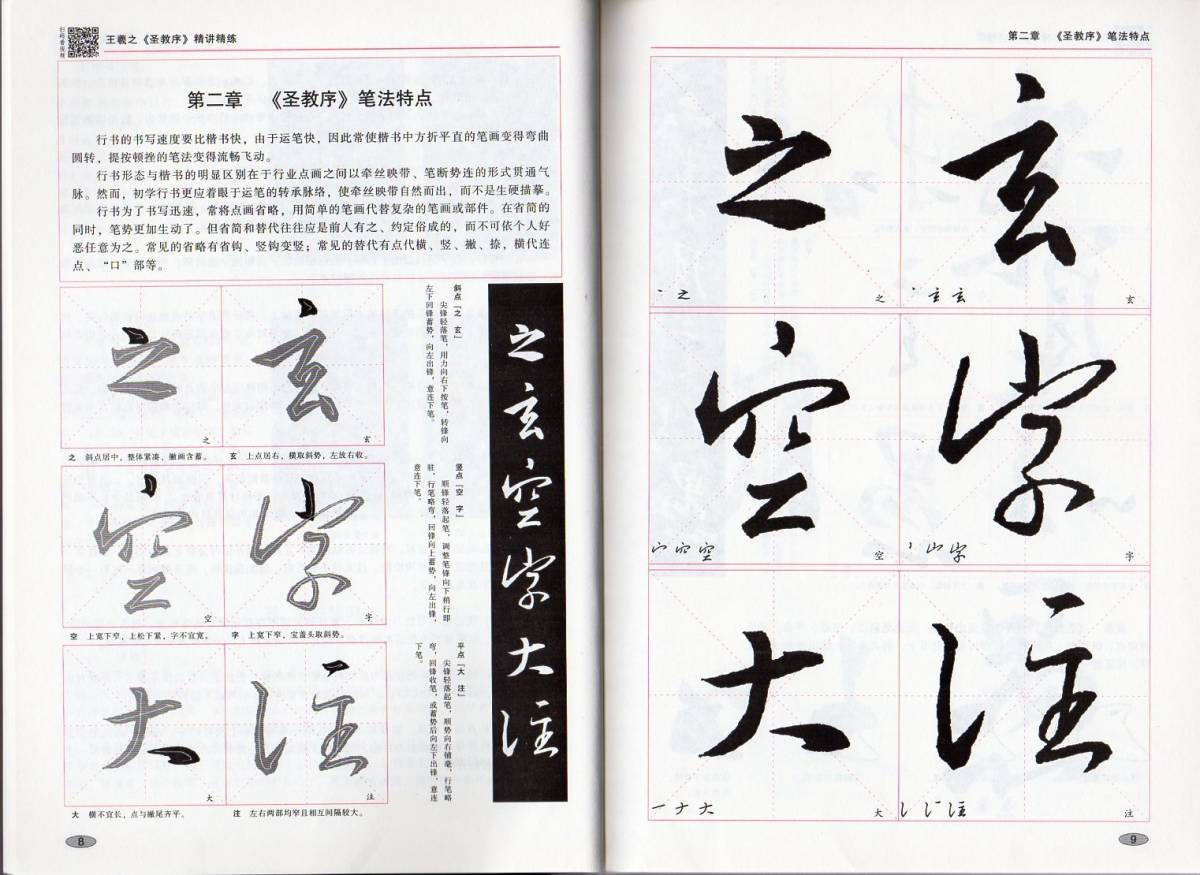 扫码看视频
王羲之《圣教序》精讲精练
第二章 《圣教序》笔法特点
行书的书写速度要比楷书快，由于运笔快，因此常使楷书中方折平直的笔画变得弯曲
圆转，提按顿挫的笔法变得流畅飞动。
行书形态与楷书的明显区别在于行业点画之间以牵丝映带、笔断势连的形式贯通气
脉。然而，初学行书更应着眼于运笔的转承脉络，使牵丝映带自然而出，而不是生硬描摹。
行书为了书写迅速，常将点画省略，用简单的笔画代替复杂的笔画或部件。在省简的
同时，笔势更加生动了。但省简和替代往往应是前人有之、约定俗成的，而不可依个人好
恶任意为之。常见的省略有省钩、竖钩变竖；常见的替代有点代横、竖、撇、捺，横代连
点、“口”部等。
之 玄
之 玄
之 斜点居中，整体紧凑，撇画含蓄。 玄 上点居右，横取斜势，左放右收。
空 字
空 字
空 上宽下窄，上松下紧，字不宜宽。 字 上宽下窄，宝盖头取斜势。
大 注
大 注
大 横不宜长，点与撇尾齐平。 注 左右两部均窄且相互间隔较大。
斜点「之 玄」
尖锋轻落笔，用力向右下按笔，转锋向
左下回锋蓄势，向左出锋，意连下笔。
竖点「空 字」
顺锋轻落起笔，调整笔锋向下稍行即
驻，行笔略弯，回锋向上蓄势，向左出锋，
意连下笔。
平点「大 注」
尖锋轻落起笔，顺势向右铺毫，行笔略
弯，回锋收笔，或蓄势后向左下出锋，意连
下笔。
之玄空字大注
8
第二章 《圣教序》笔法特点
之 玄
之 之 玄 玄
空 字
空 空 字 字
大 注
一ナ大 大 注 注
9